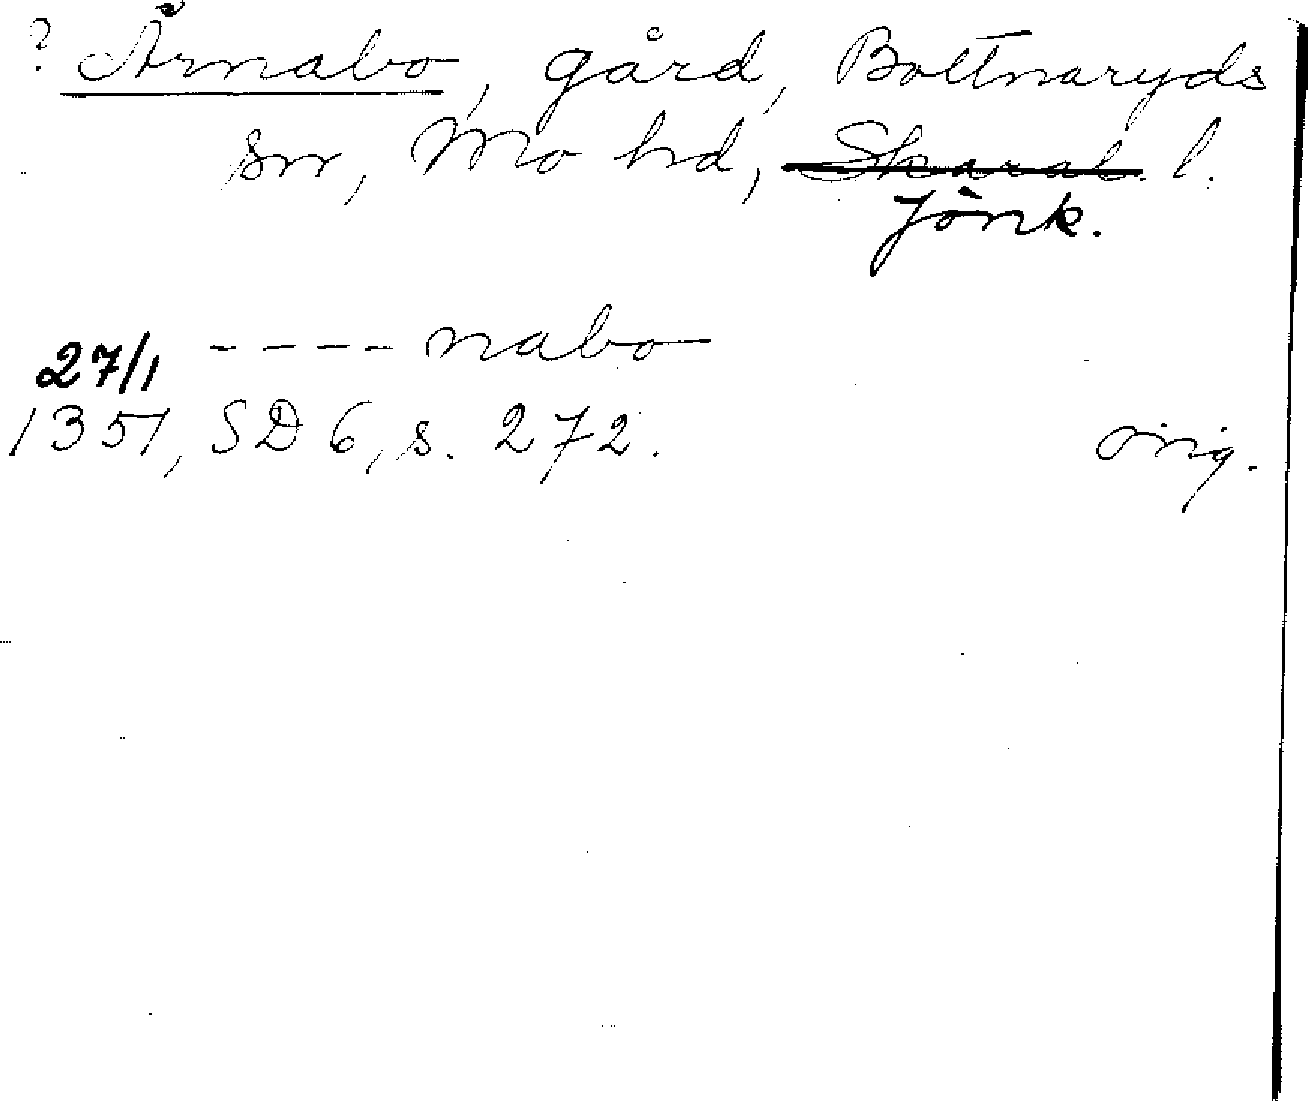 ? Årnabo, gård, Bottnaryds
sn, Mo hd, Skarab. l.
Jönk.
27/1 ---- nabo
1351, SD 6, s. 272. orig.